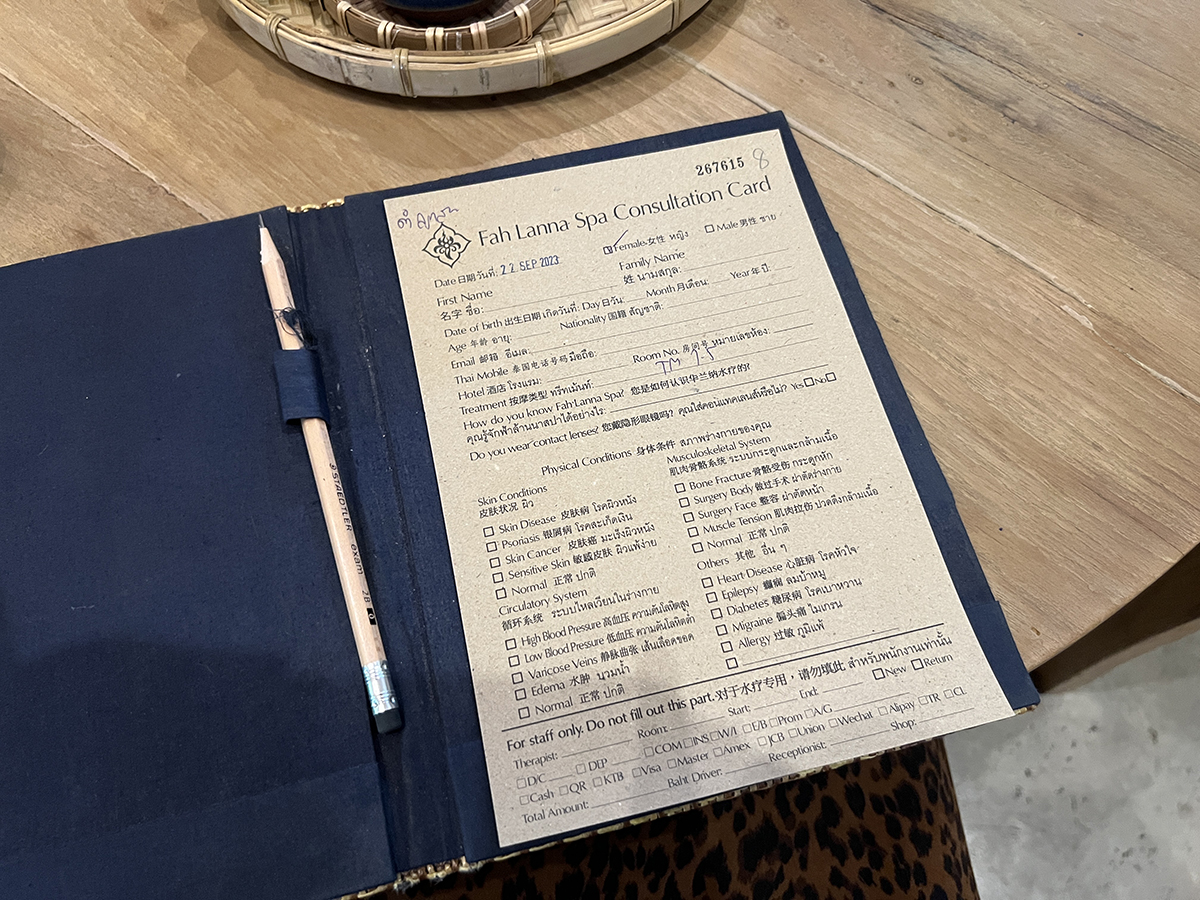 267615 8
Fah Lanna Spa Consultation Card
Female 女性 หญิง Male 男性 ชาย
Date 日期 วันที่: 22 SEP 2023
First Name Family Name
名字 ชื่อ: 姓 นามสกุล:
Date of birth 出生日期 เกิดวันที่: Day 日 วัน: Month 月 เดือน: Year 年 ปี:
Age 年龄 อายุ: Nationality 国籍 สัญชาติ:
Email 邮箱 อีเมล:
Thai Mobile 泰国电话号码 มือถือ:
Hotel 酒店 โรงแรม: Room No. 房间号 หมายเลขห้อง:
Treatment 按摩类型 ทรีทเม้นท์: TM 1.5
How do you know Fah Lanna Spa? 您是如何认识华兰纳水疗的?
คุณรู้จักฟ้าล้านนาสปาได้อย่างไร:
Do you wear contact lenses? 您戴隐形眼镜吗? คุณใส่คอนแทคเลนส์หรือไม่? Yes No
Physical Conditions 身体条件 สภาพร่างกายของคุณ
Skin Conditions
皮肤状况 ผิว
Skin Disease 皮肤病 โรคผิวหนัง
Psoriasis 银屑病 โรคสะเก็ดเงิน
Skin Cancer 皮肤癌 มะเร็งผิวหนัง
Sensitive Skin 敏感皮肤 ผิวแพ้ง่าย
Normal 正常 ปกติ
Circulatory System
循环系统 ระบบไหลเวียนในร่างกาย
High Blood Pressure 高血压 ความดันโลหิตสูง
Low Blood Pressure 低血压 ความดันโลหิตต่ำ
Varicose Veins 静脉曲张 เส้นเลือดขอด
Edema 水肿 บวมน้ำ
Normal 正常 ปกติ
Musculoskeletal System
肌肉骨骼系统 ระบบกระดูกและกล้ามเนื้อ
Bone Fracture 骨骼受伤 กระดูกหัก
Surgery Body 做过手术 ผ่าตัดร่างกาย
Surgery Face 整容 ผ่าตัดหน้า
Muscle Tension 肌肉拉伤 ปวดตึงกล้ามเนื้อ
Normal 正常 ปกติ
Others 其他 อื่น ๆ
Heart Disease 心脏病 โรคหัวใจ
Epilepsy 癫痫 ลมบ้าหมู
Diabetes 糖尿病 โรคเบาหวาน
Migraine 偏头痛 ไมเกรน
Allergy 过敏 ภูมิแพ้
For staff only. Do not fill out this part. 对于水疗专用，请勿填此 สำหรับพนักงานเท่านั้น
Therapist: Room: Start: End: New Return
D/C DEP COM INS W/I E/B Prom A/G
Cash QR KTB Visa Master Amex JCB Union Wechat Alipay TR CL
Total Amount: Baht Driver: Receptionist: Shop:
STAEDTLER exam 2B